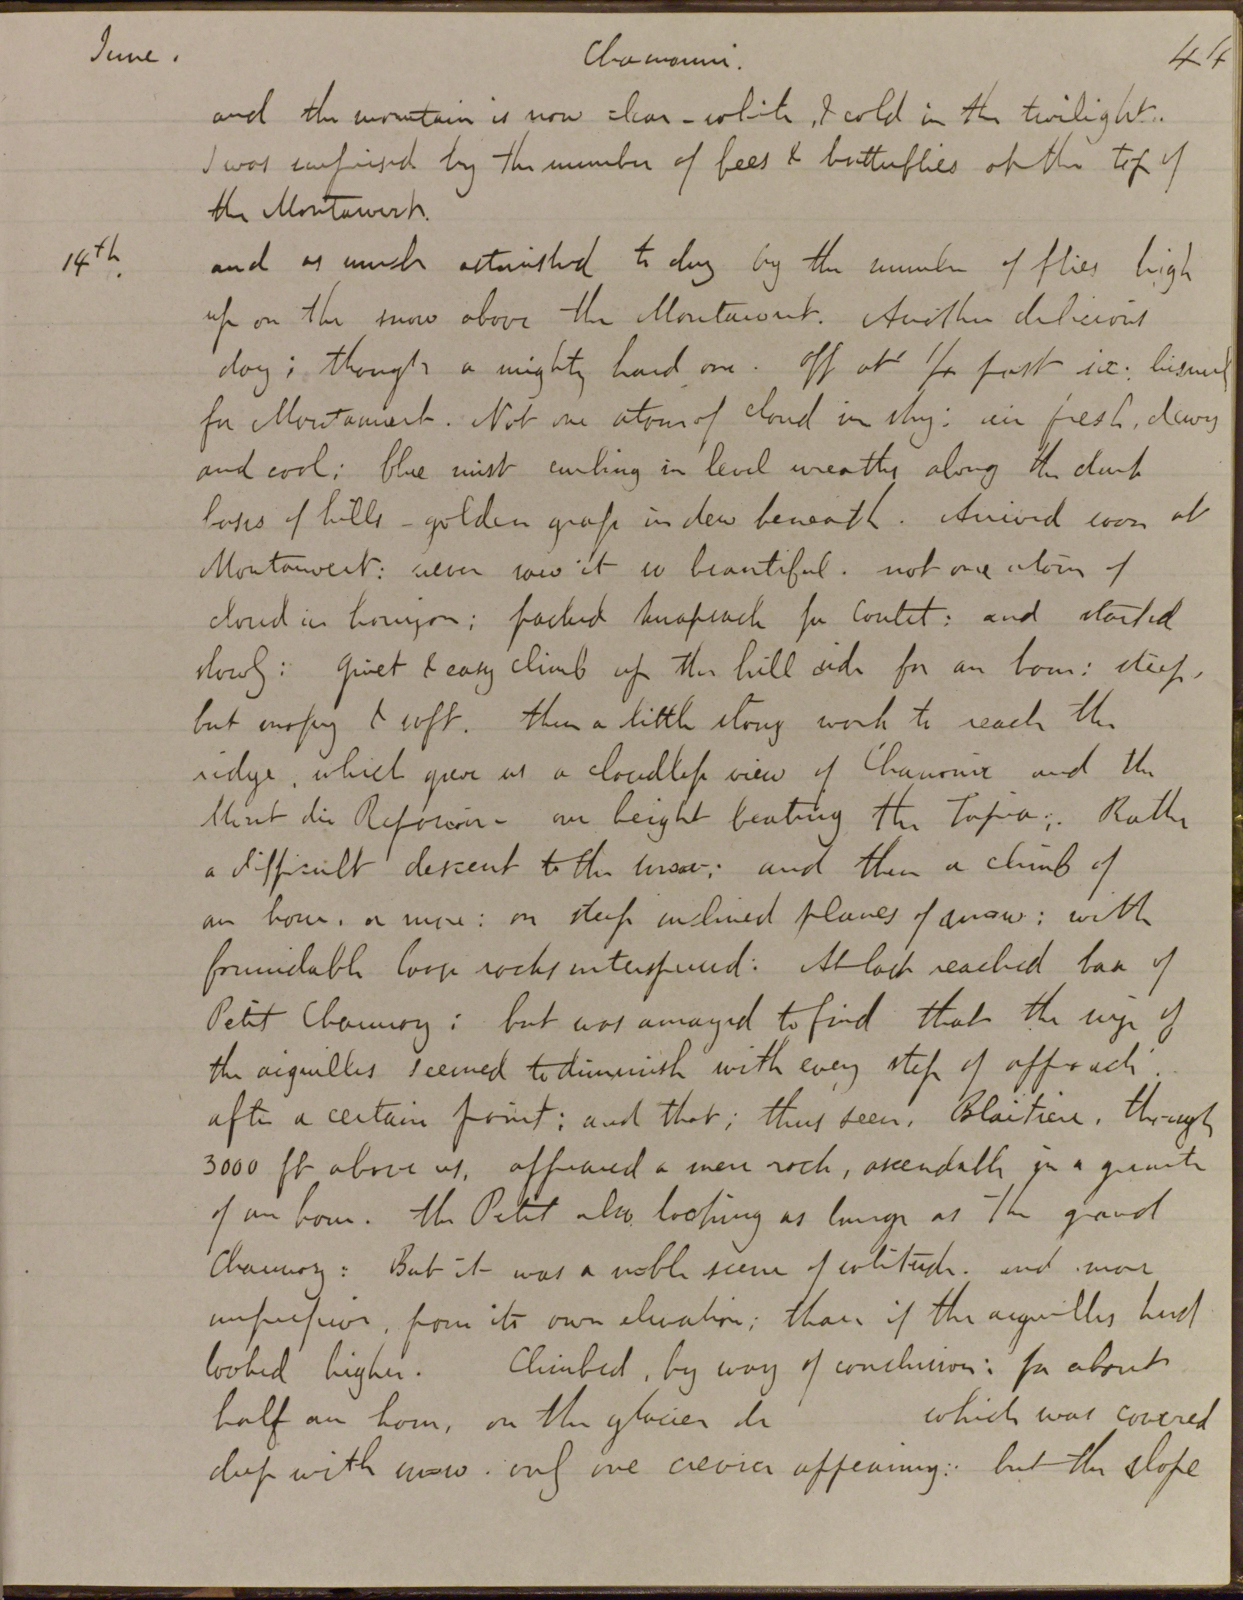 June. Chamouni. 44
and the mountain is now clear - white, & cold in the twilight.
I was surprised by the number of bees & butterflies at the top of
the Montanvert.
14th. and as much astonished to day by the number of flies high
up on the snow above the Montanvert. Another delicious
day; though a mighty hard one. Off at 1/2 past six:
for Montanvert. Not one atom of cloud in sky: air fresh, dewy
and cool: blue mist curling in level wreaths along the dark
bases of hills - golden grass in dew beneath. Arrived soon at
Montanvert: never saw it so beautiful. not one atom of
cloud in horizon; packed knapsack for Coutet: and started
slowly: quiet & easy climb up the hill side for an hour: steep,
but mossy & soft. then a little stony work to reach the
ridge, which gave us a cloudless view of Chamonix and the
our height beating the Tapia;. Rather
a difficult descent to the snow; and then a climb of
an hour, or more: on steep inclined planes of snow: with
formidable loose rocks interspersed: At last reached base of
Petit Charmoz: but was amazed to find that the size of
the aiguilles seemed to diminish with every step of approach.
after a certain point; and that; thus seen, Blaitiere, though
3000 ft above us, appeared a mere rock, ascendable in a quarter
of an hour. the Petit also looking as large as the grand
Charmoz: But it was a noble scene of solitude. and more
impressive, from its own elevation; than if the aiguilles had
looked higher. Climbed, by way of conclusion: for about
half an hour, on the glacier de which was covered
deep with snow. only one crevice appearing: but the slope